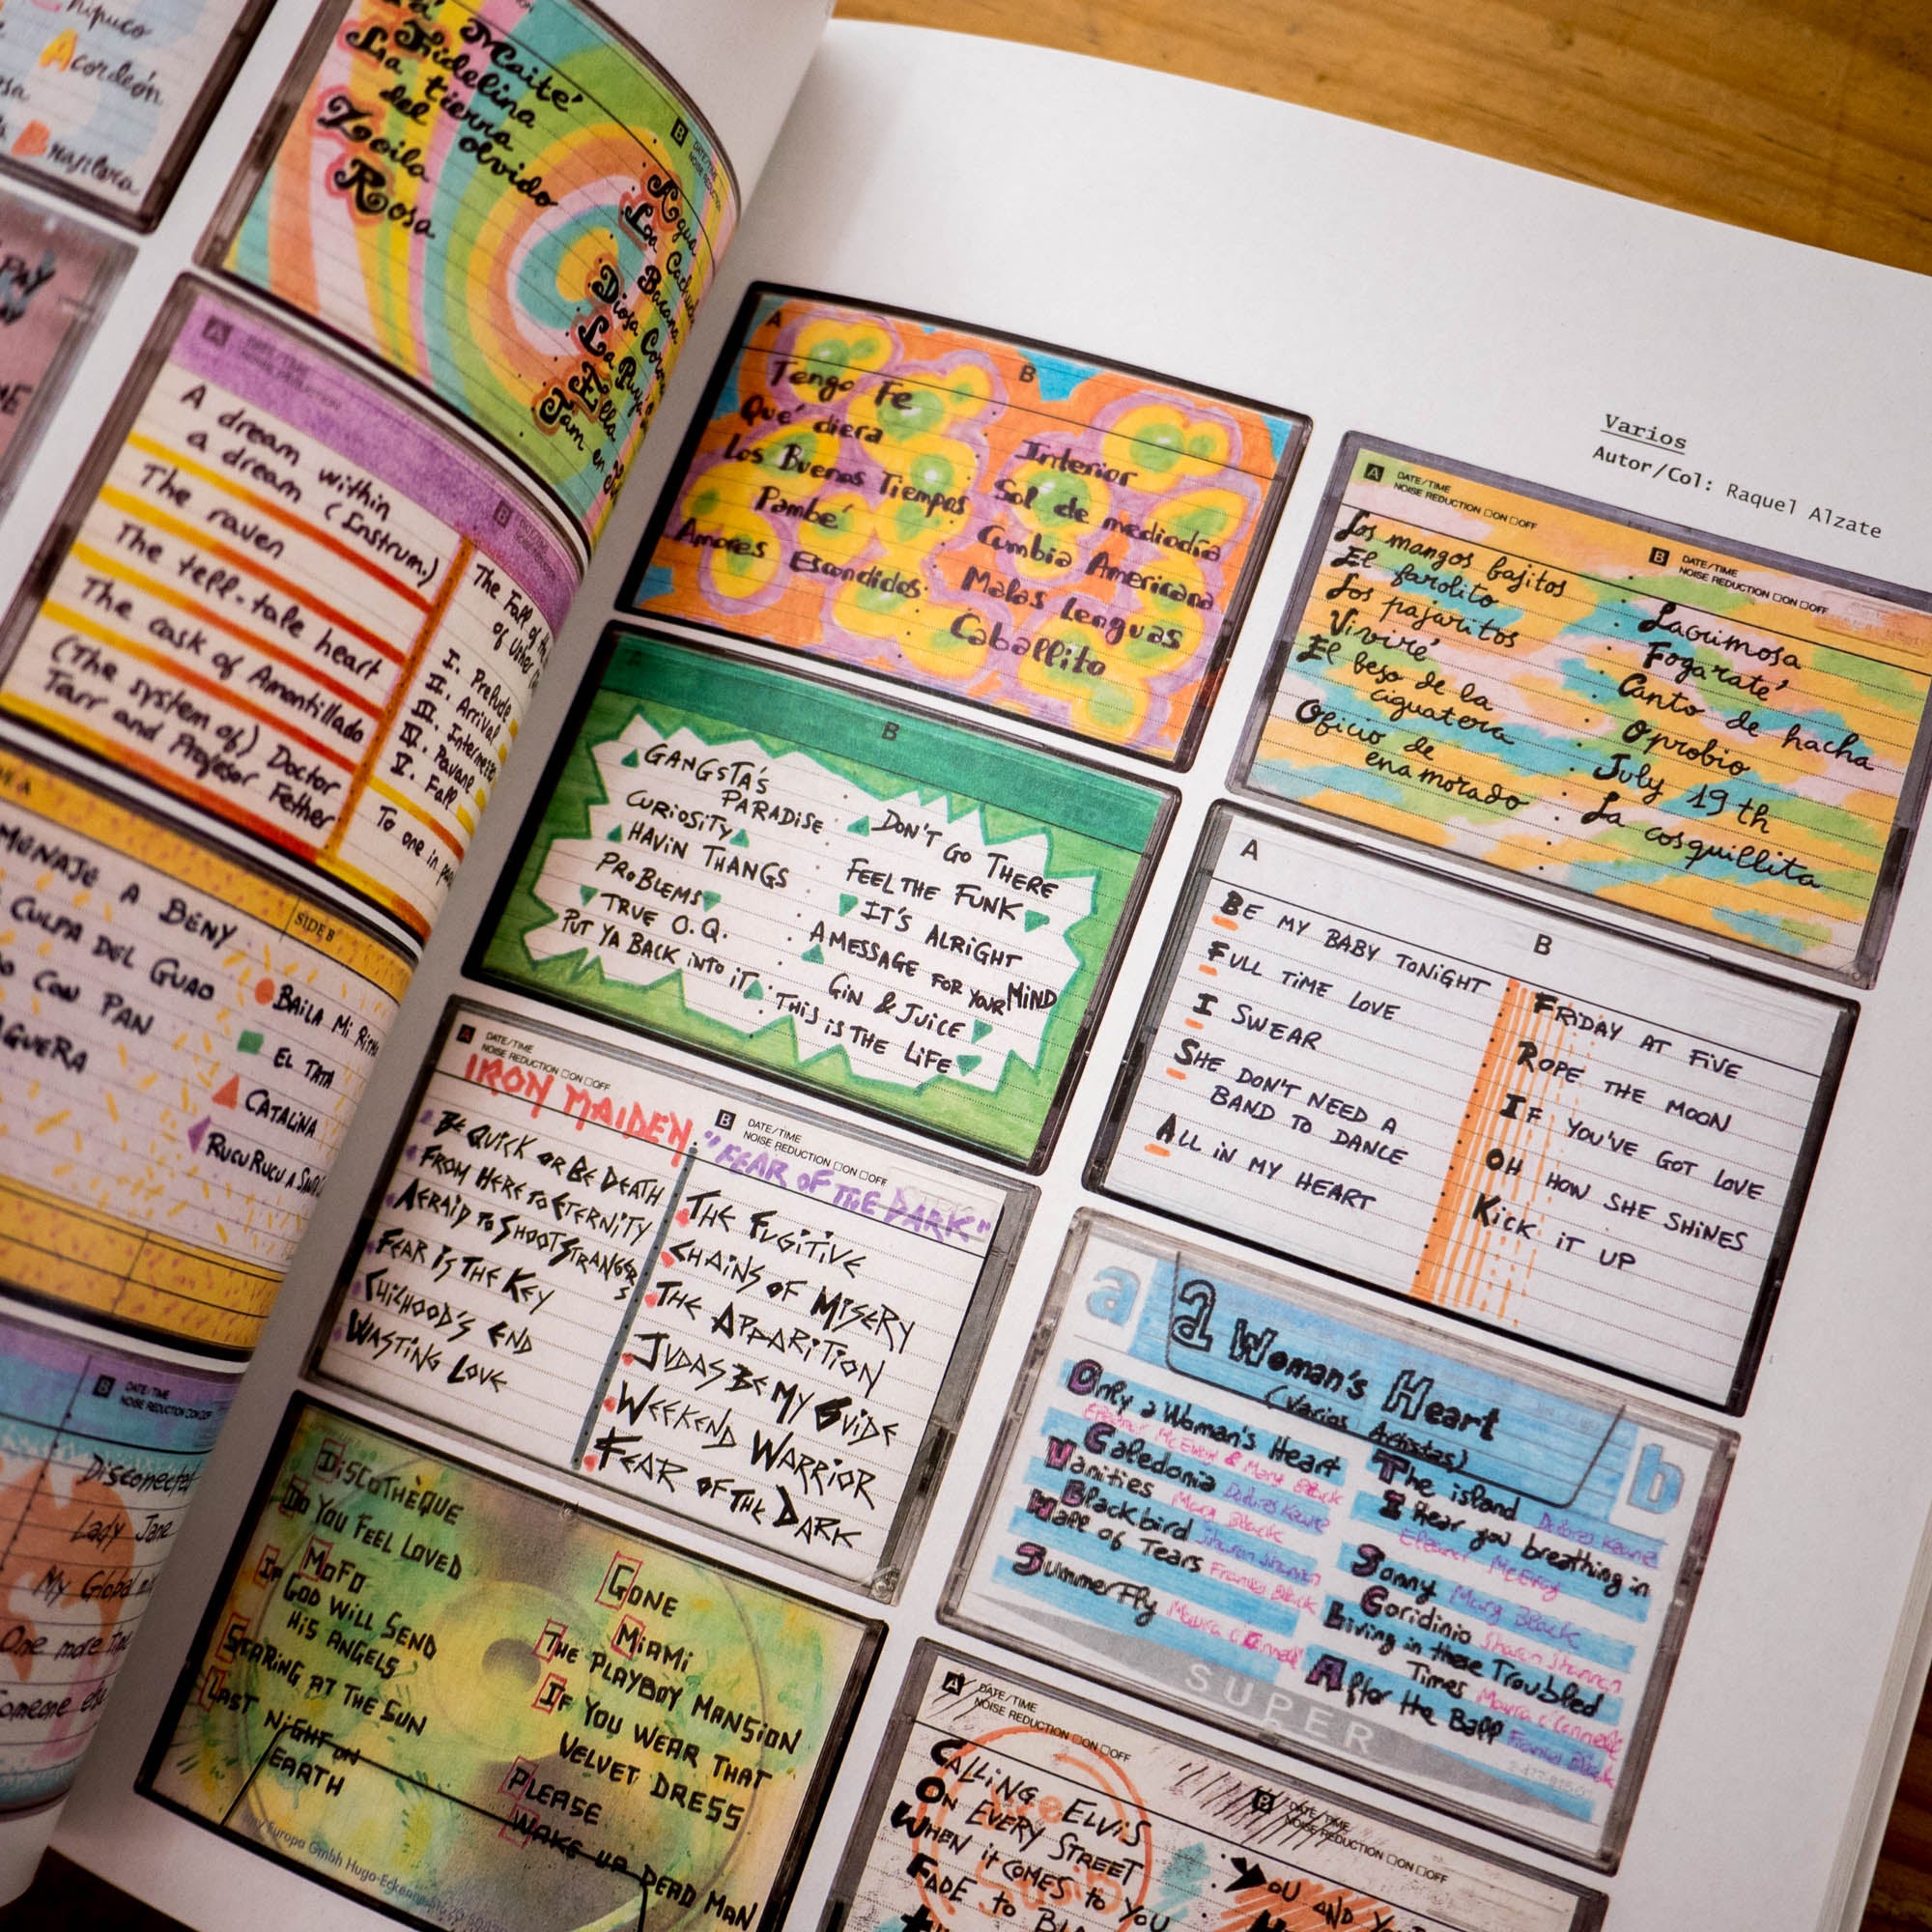 Acordeón
Brasilera
PAY
Maité
Fidelina
La tierra
del olvido
Zoila
Rosa
B DATE/TIME
NOISE REDUCTION
Agua
La Bacana
Diosa
La Puya
Ella
Jam en
A
A dream within
a dream (Instrum.)
The raven
The tell-tale heart
The cask of Amontillado
(The system of) Doctor
Tarr and Profesor Fether
B
The Fall of the
of Usher
I. Prelude
II. Arrival
III. Intermezzo
IV. Pavane
V. Fall
To one in
MENAJE A BENY
CULPA DEL GUAO
CON PAN
SIDE B
BAILA Mi
EL TATA
CATALINA
RUCU RUCU A
B DATE/TIME
NOISE REDUCTION □ON □OFF
Disconected
Lady Jane
My Global
One more
Someone else
A
Tengo Fe
Qué diera
Los Buenos Tiempos
Pambé
Amores Escondidos
B
Interior
Sol de mediodía
Cumbia Americana
Malas Lenguas
Caballito
B
GANGSTA'S
PARADISE
CURIOSITY
HAVIN THANGS
PROBLEMS
TRUE O.Q.
PUT YA BACK INTO IT
DON'T GO THERE
FEEL THE FUNK
IT'S ALRIGHT
A MESSAGE FOR YOUR MIND
GIN & JUICE
THIS IS THE LIFE
A DATE/TIME
NOISE REDUCTION □ON □OFF
IRON MAIDEN
BE QUICK OR BE DEATH
FROM HERE TO ETERNITY
AFRAID TO SHOOT STRANGERS
FEAR IS THE KEY
CHILHOOD'S END
WASTING LOVE
B DATE/TIME
NOISE REDUCTION □ON □OFF
"FEAR OF THE DARK"
THE FUGITIVE
CHAINS OF MISERY
THE APPARITION
JUDAS BE MY GUIDE
WEEKEND WARRIOR
FEAR OF THE DARK
DISCOTHÈQUE
DO YOU FEEL LOVED
MOFO
IF GOD WILL SEND
HIS ANGELS
STARING AT THE SUN
LAST NIGHT ON
EARTH
GONE
MIAMI
THE PLAYBOY MANSION
IF YOU WEAR THAT
VELVET DRESS
PLEASE
WAKE UP DEAD MAN
Europa Gmbh Hugo-Eckener
Varios
Autor/Col: Raquel Alzate
A DATE/TIME
NOISE REDUCTION □ON □OFF
Los mangos bajitos
El farolito
Los pajaritos
Viviré
El beso de la
ciguatera
Oficio de
enamorado
B DATE/TIME
NOISE REDUCTION □ON □OFF
Lacrimosa
Fogaraté
Canto de hacha
Oprobio
July 19 th
La cosquillita
A
BE MY BABY TONIGHT
FULL TIME LOVE
I SWEAR
SHE DON'T NEED A
BAND TO DANCE
ALL IN MY HEART
B
FRIDAY AT FIVE
ROPE THE MOON
IF YOU'VE GOT LOVE
OH HOW SHE SHINES
KICK IT UP
a
a Woman's Heart
(Varios Artistas)
b
Only a Woman's Heart
Eleanor McEvoy & Mary Black
Caledonia Dolores Keane
Vanities Mary Black
Blackbird Sharon Shannon
Wall of Tears Frances Black
Summerfly Maura O'Connell
The island Dolores Keane
I hear you breathing in
Eleanor McEvoy
Sonny Mary Black
Coridinio Sharon Shannon
Living in these Troubled
Times Maura O'Connell
After the Ball Frances Black
SUPER
A DATE/TIME
NOISE REDUCTION □ON □OFF
CALLING ELVIS
ON EVERY STREET
WHEN IT COMES TO YOU
FADE TO
B DATE/TIME
NOISE REDUCTION □ON □OFF
YOU AND